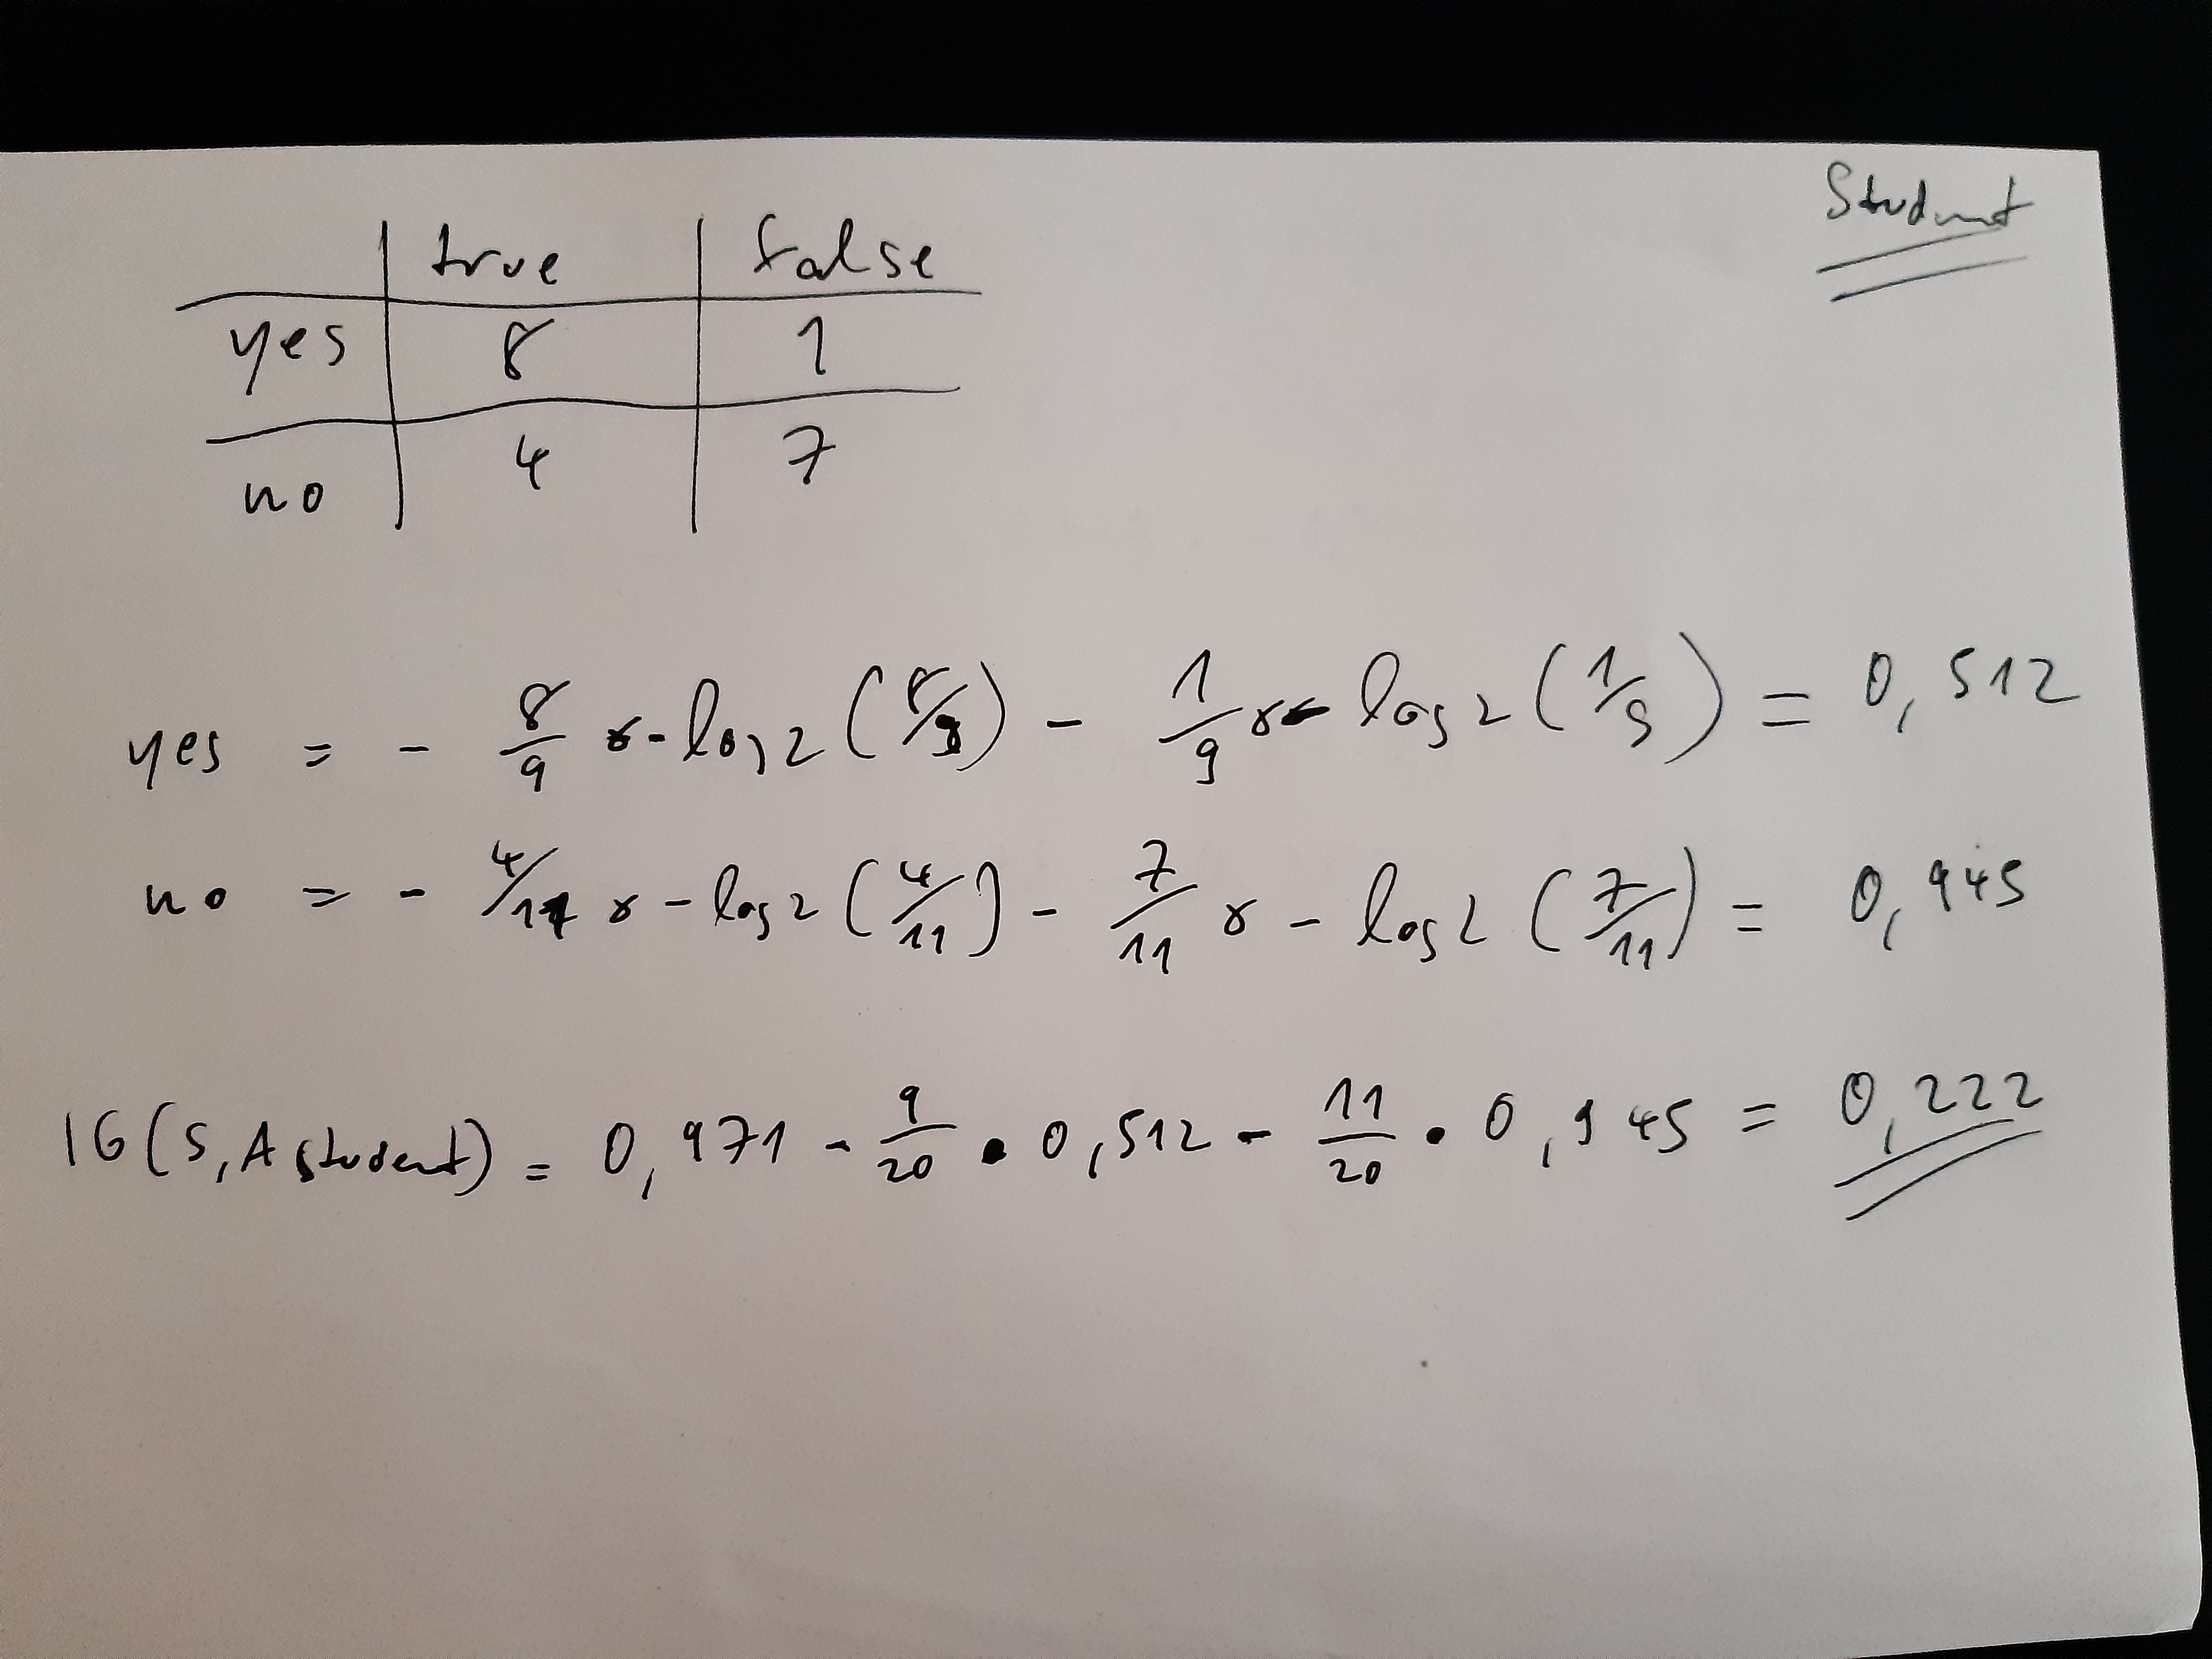 Student
true false
yes 8 1
no 4 7
yes = - 8/9 * - log2 (8/9) - 1/9 * - log2 (1/9) = 0,512
no = - 4/11 * - log2 (4/11) - 7/11 * - log2 (7/11) = 0,945
IG(S,A Student) = 0,971 - 9/20 • 0,512 - 11/20 • 0,945 = 0,222